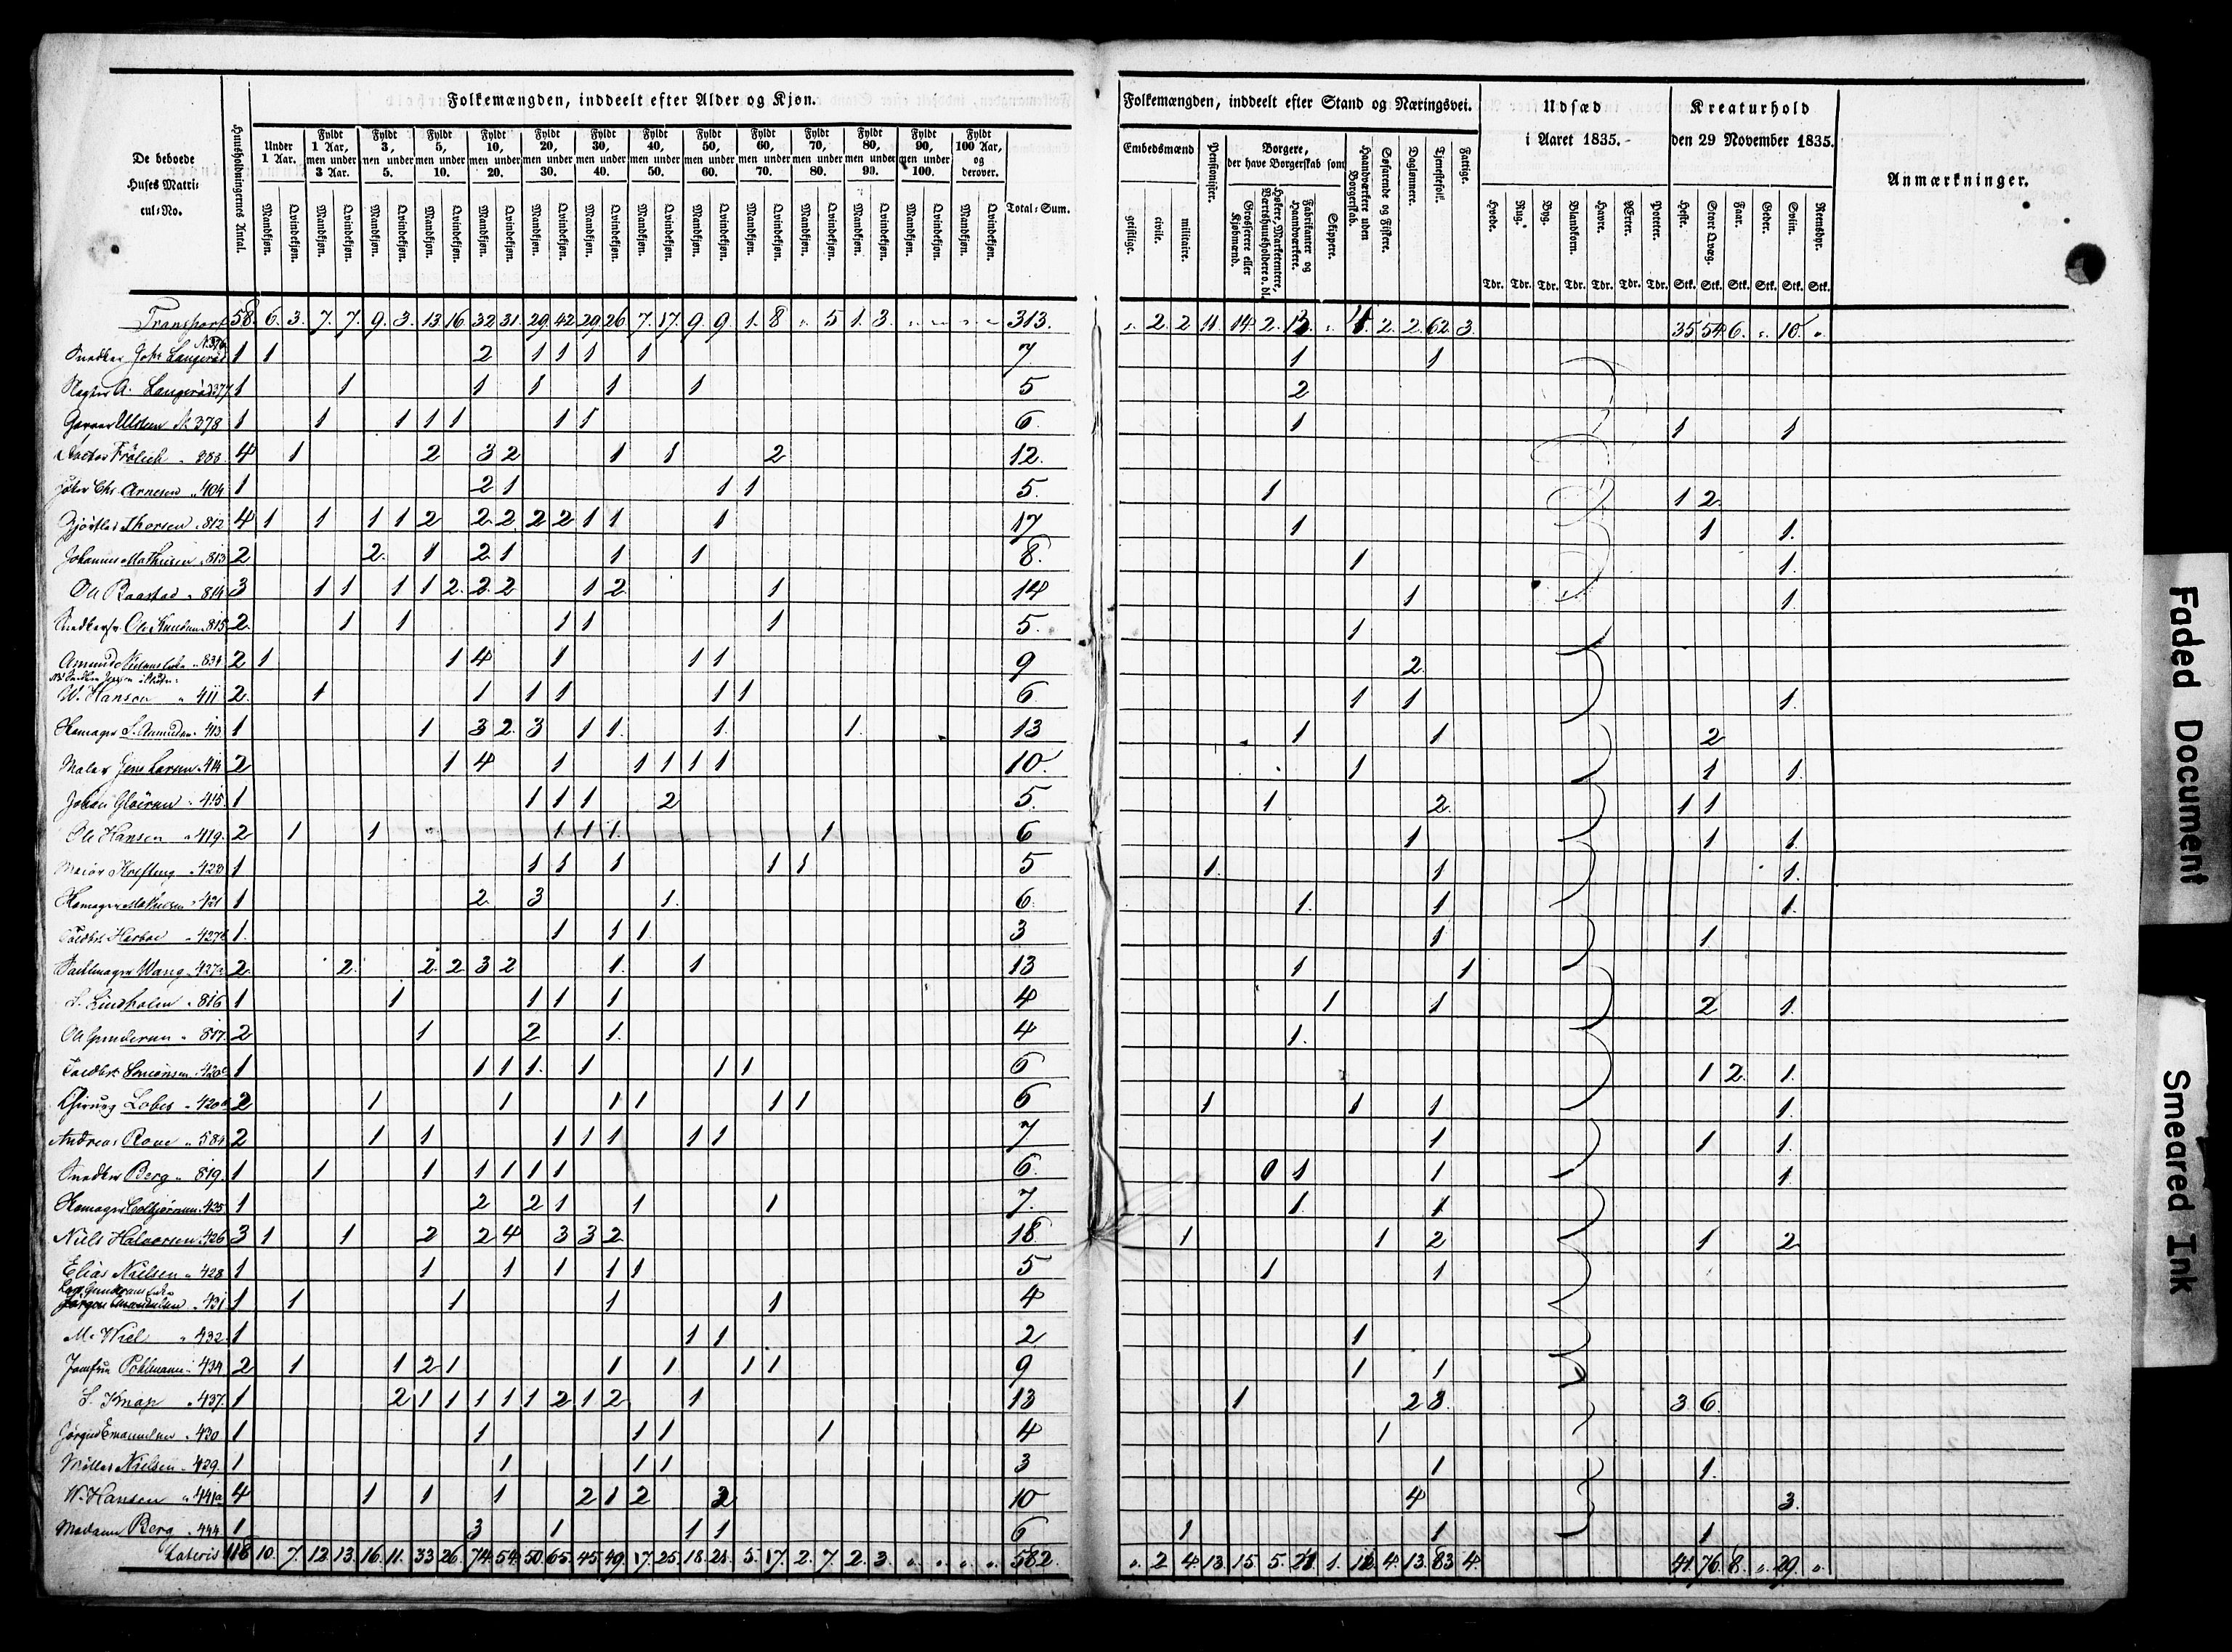 Folkemængden, inddeelt efter Alder og Kjøn.
De beboede Huses Matricul-No.
Huusholdningernes Antal.
Under 1 Aar.
Fyldt 1 Aar, men under 3 Aar.
Fyldt 3, men under 5.
Fyldt 5, men under 10.
Fyldt 10, men under 20.
Fyldt 20, men under 30.
Fyldt 30, men under 40.
Fyldt 40, men under 50.
Fyldt 50, men under 60.
Fyldt 60, men under 70.
Fyldt 70, men under 80.
Fyldt 80, men under 90.
Fyldt 90, men under 100.
Fyldt 100 Aar, og derover.
Mandkjøn. Qvindekjøn.
Total-Sum.
Folkemængden, inddeelt efter Stand og Næringsvei.
Embedsmænd
geistlige. civile. militaire.
Pensionister.
Borgere, der have Borgerskab som
Grosserere eller Kjøbmænd.
Høkere, Marketentere, Værtshuusholdere o. dl.
Fabrikanter og Haandværkere.
Skippere.
Haandværkere uden Borgerskab.
Søfarende og Fiskere.
Dagløennere.
Tjenestefolk.
Fattige.
Udsæd i Aaret 1835.
Hvede. Rug. Byg. Blandkorn. Havre. Ærter. Poteter.
Tdr. Tdr. Tdr. Tdr. Tdr. Tdr. Tdr.
Kreaturhold den 29 November 1835.
Heste. Stort Qvæg. Faar. Geder. Sviin. Reensdyr.
Stk. Stk. Stk. Stk. Stk. Stk.
Anmærkninger.
Transport 58. 6. 3. 7. 7. 9. 3. 13 16. 32 31. 29. 42 29. 26 7. 17. 9. 9 1. 8 „ 5 1. 3. 313. „ 2. 2 11. 14 2. 2. 2. 62. 3. 35 54 6. „ 10. „
Snedker Johs Langerød N. 376 1 1 2 1 1 1 1 7 1 1
A. Langerød 377 1 1 1 1 1 1 5 2
Garver N. 378 1 1 1 1 1 1 1 6 1 1 1
Frölich „ 383 4 1 2 3 2 1 1 2 12.
Chr. Arnesen „ 404 1 2 1 1 1 5. 1 1 2.
Thorsen „ 812 4 1 1 1 1 2 2 2 2 2 1 1 1 17 1 1 1.
Johannes Mathiesen „ 813 2 2. 1 2 1 1 1 8. 1 1.
Ole Baastad „ 814 3 1 1 1 1 2. 2. 2 1 2 1 14 1 1.
Ole Knudsen 815 2. 1 1 1 1 1 5. 1
Amund „ 834 2 1 1 4 1 1 1 9 2.
W. Hansen „ 411 2. 1 1 1 1 1 1 6 1 1 1.
S. Amundsen „ 413. 1 1 3 2. 3 1 1. 1. 1. 13 1 1 2
Maler Jens Larsen „ 414 2 1 4 1 1 1 1 1 10. 1 1 1.
Johan „ 415. 1 1 1 1 2 5. 1 2. 1 1
Ole Hansen „ 419. 2 1 1 1 1 1. 1 6 1 1 1.
Maior Krefting „ 423 1 1 1 1 1 1 5 1. 1 1.
Mathiesen „ 421 1 2. 3 1. 6. 1. 1 1.
Harboe „ 427b 1. 1 1 1. 3 1 1.
Wang „ 427a 2. 2. 2. 2 3 2 1. 1 13 1 1
S. Lindholm „ 816 1 1 1 1 1 4 1 1 2 1.
Ole Gundersen „ 817. 2 1 2 1. 4 1.
Simonsen „ 420b 1 1 1 1. 1 1 1 6 1 2 1.
Chirurg Lobes „ 420a 2 1 1 1 1 1 1 6 1 1 1 1.
Andreas Roue „ 584 2 1 1 1 1 1 1 1 7 1 1 1.
Snedker Berg „ 819. 1 1 1 1 1 1 1 6. 0 1 1 1.
Colbjørnsen „ 425 1 2 2 1 1 1 7. 1. 1
Niels Halvorsen „ 426 3 1 1 2 2 4 3 3 2 18 1 1 2 1 2
Elias Nielsen „ 428 1 1 1 1 1 1 5 1 1
„ 431 1 1 1 1 1 4
M. Wiel „ 432. 1 1 1 2 1
Jomfru Pohlmann „ 434 2 1 1 2 1 1 1 1 1 9 1 1
S. Knap „ 437. 1 2 1 1 1 1 1 2 1 2 1 13 1 2 8 3 6
Jørgen Emanuelsen „ 430 1 1 1 1 1 4 1
Nielsen „ 429. 1 1 1 1 3 1 1.
W. Hansen „ 441a 4 1 1 1 2 1 2 2 10 4 3.
Madam Berg „ 444 1 3 1 1 1 6 1 1 1
Lateris 118 10. 7. 12. 13. 16. 11. 33 26. 74. 54. 50. 65. 45 49. 17. 25. 18. 21. 5. 17. 2. 7. 2. 3. 582. „ 2 4. 13. 15. 5. 1. 4. 13. 83 4. 41. 76. 8. „ 29. „
Faded Document
Smeared Ink